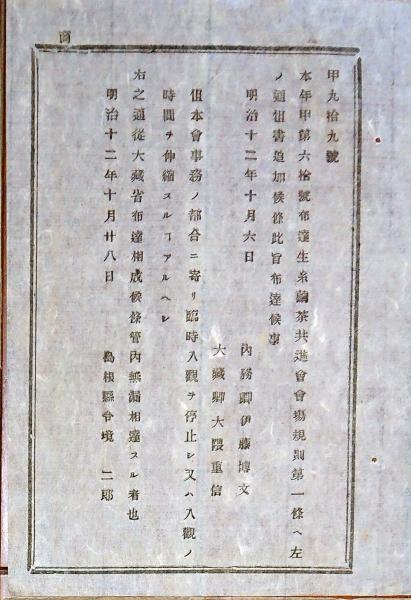 商
甲九拾九號
本年甲第六拾號布達生糸繭茶共進會會塲規則第一條ヘ左
ノ通但書追加候條此旨布達候事
明治十二年十月六日
內務卿伊藤博文
大藏卿大隈重信
但本會事務ノ都合ニ寄リ臨時入觀ヲ停止シ又ハ入觀ノ
時間ヲ伸縮スルヿアルヘシ
右之通從大藏省布達相成候條管內無漏相達スル者也
明治十二年十月廿八日
島根縣令境二郎